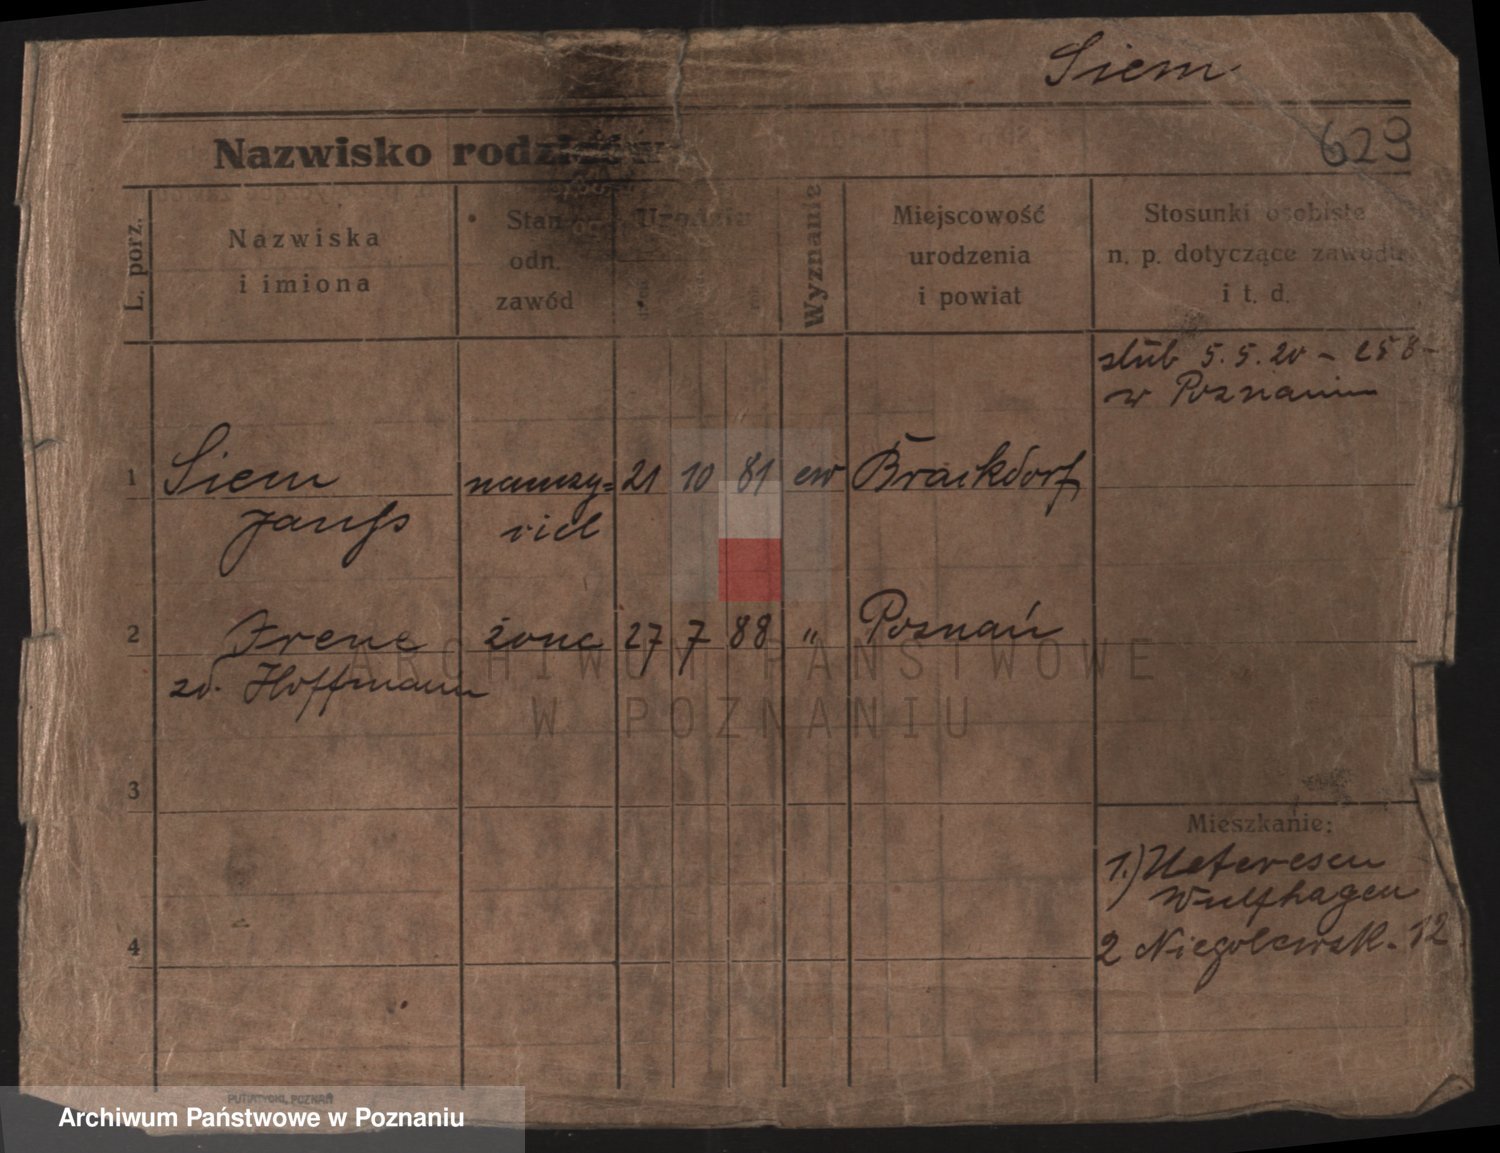 Siem
Nazwisko rodziców
629
L. porz.
Nazwiska
i imiona
Stan
odn.
zawód
Urodzin
Wyznanie
Miejscowość
urodzenia
i powiat
Stosunki osobiste
n. p. dotyczące zawodu
i t. d.
ślub 5.5.20 - 258 -
w Poznaniu
1 Siem nauczy= 21 10 81 ew Brackdorf
ciel
2 Irene żona 27 7 88 " Poznań
zd. Hoffmann
ARCHIWUM PAŃSTWOWE
W POZNANIU
3
Mieszkanie:
1.)
Wulfhagen
4
2 Niegolewsk. 12
PUTIATYCKI, POZNAŃ
Archiwum Państwowe w Poznaniu